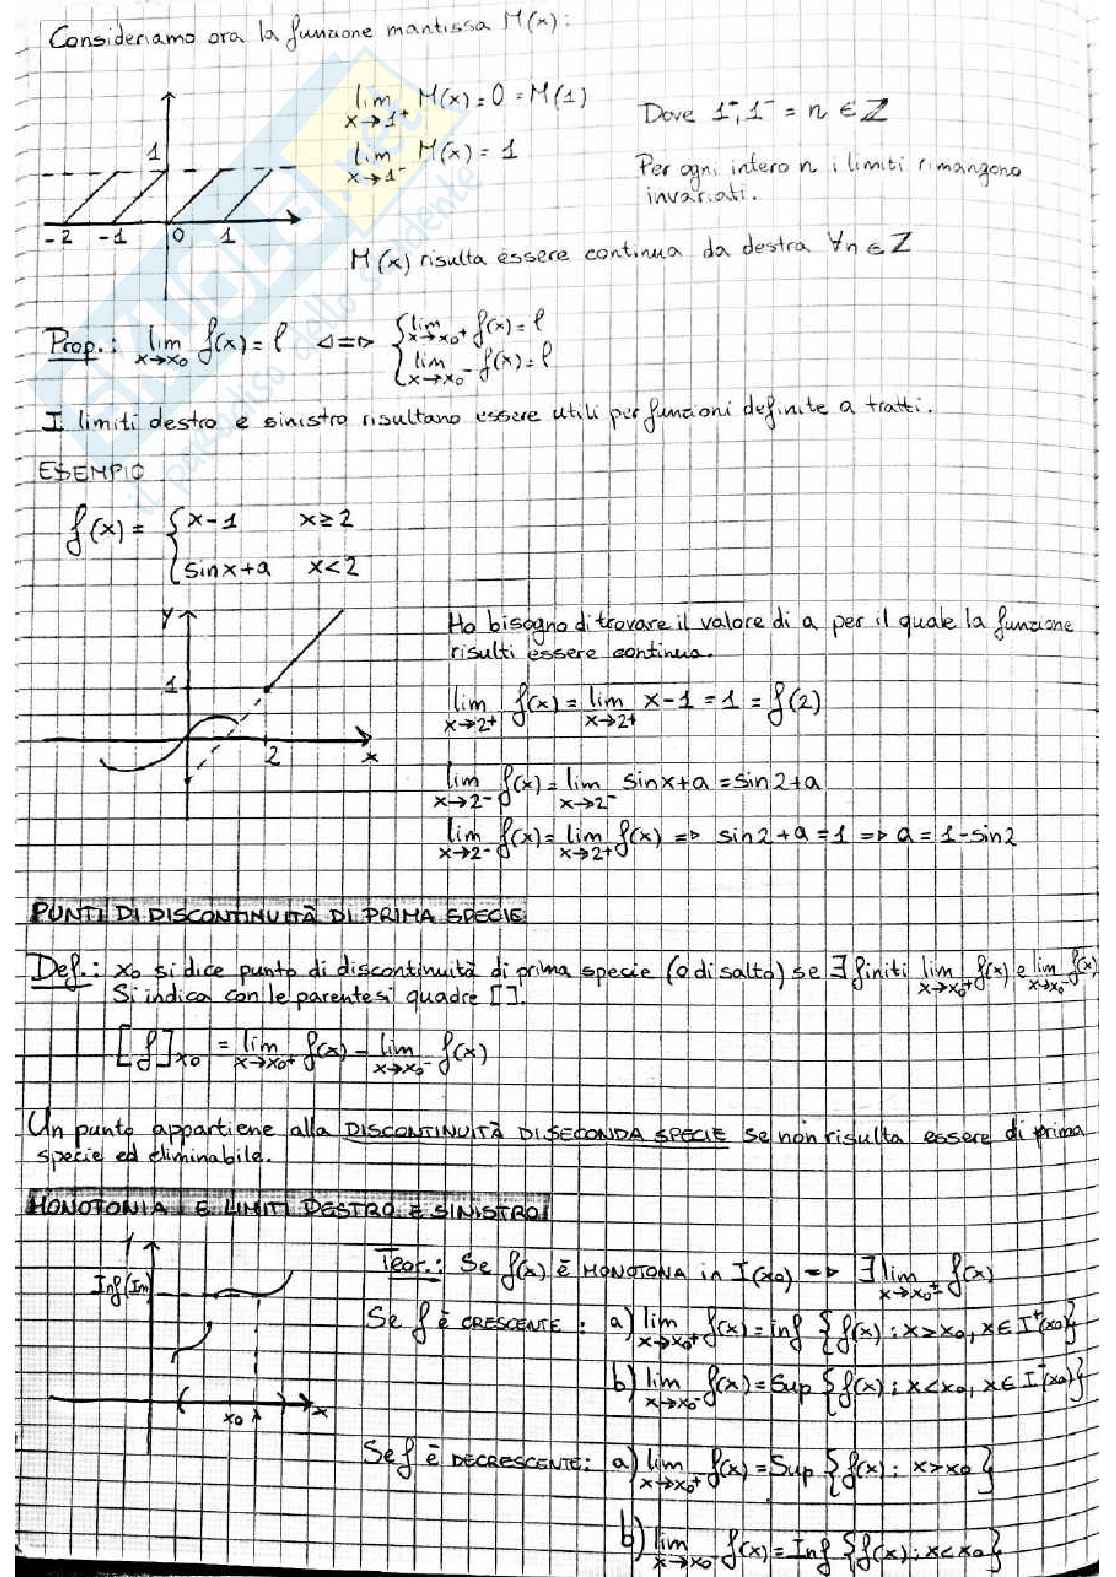 Consideriamo ora la funzione mantissa M(x):
lim x→1⁺ M(x) = 0 = M(1)
lim x→1⁻ M(x) = 1
Dove 1⁻, 1⁻ = n ∈ Z
Per ogni intero n i limiti rimangono
invariati.
1
-2 -1 0 1
M(x) risulta essere continua da destra ∀n ∈ Z
Prop.: lim x→x₀ f(x) = l <=> { lim x→x₀⁺ f(x) = l
lim x→x₀⁻ f(x) = l
I limiti destro e sinistro risultano essere utili per funzioni definite a tratti.
ESEMPIO
f(x) = { x-1 x≥2
sinx+a x<2
y
1
2
x
Ho bisogno di trovare il valore di a per il quale la funzione
risulti essere continua.
lim x→2⁺ f(x) = lim x→2⁺ x-1 = 1 = f(2)
lim x→2⁻ f(x) = lim x→2⁻ sinx+a = sin2+a
lim x→2⁻ f(x) = lim x→2⁺ f(x) => sin2+a = 1 => a = 1-sin2
PUNTI DI DISCONTINUITÀ DI PRIMA SPECIE
Def.: x₀ si dice punto di discontinuità di prima specie (o di salto) se ∃ finiti lim x→x₀⁺ f(x) e lim x→x₀⁻ f(x)
Si indica con le parentesi quadre [].
[f]x₀ = lim x→x₀⁺ f(x) - lim x→x₀⁻ f(x)
Un punto appartiene alla DISCONTINUITÀ DI SECONDA SPECIE se non risulta essere di prima
specie ed eliminabile.
MONOTONIA E LIMITI DESTRO E SINISTRO
Inf(Im)
x₀
x
Teor.: Se f(x) è MONOTONA in I(x₀) => ∃ lim x→x₀± f(x)
Se f è CRESCENTE: a) lim x→x₀⁺ f(x) = inf {f(x): x>x₀, x∈I⁺(x₀)}
b) lim x→x₀⁻ f(x) = Sup {f(x): x<x₀, x∈I⁻(x₀)}
Se f è DECRESCENTE: a) lim x→x₀⁺ f(x) = Sup {f(x): x>x₀}
b) lim x→x₀⁻ f(x) = Inf {f(x): x<x₀}
skuola.net
il paradiso dello studente